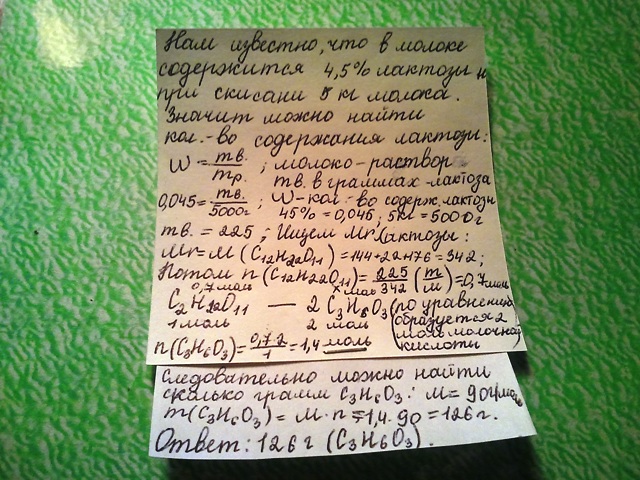 Нам известно, что в молоке
содержится 4,5% лактозы и
при скисани 5 кг молока.
Значит можно найти
кол.-во содержания лактозы:
W = mв. / mр. ; молоко-раствор
mв. в граммах-лактоза
0,045 = mв. / 5000г ; W-кол-во содерж. лактозы
45% = 0,045; 5кг = 5000г
mв. = 225; Ищем Mr лактозы:
Mr = M (C12H22O11) = 144+22+176 = 342;
Потом n (C12H22O11) = 225/342 (m/M) = 0,7моль
0,7 моль х моль
C2H22O11 — 2 C3H6O3 (по уравнению
1 моль 2 моль образуется 2
моль молочной
n(C3H6O3) = 0,7·2/1 = 1,4 моль кислоты)
Следовательно можно найти
сколько грамм C3H6O3: M = 90г/моль
m(C3H6O3) = M·n = 1,4·90 = 126 г.
Ответ: 126 г (C3H6O3).